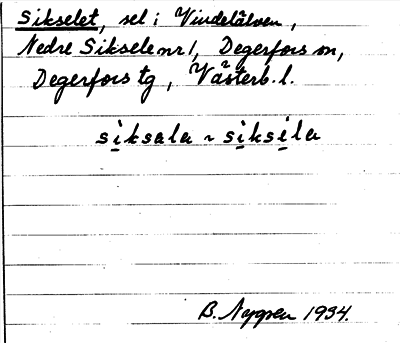 Sikselet, sel i Vindelälven,
Nedre Siksele nr 1, Degerfors sn,
Degerfors tg, Västerb. l.
sịksala ~ sịksịla
B. Nygren 1934.